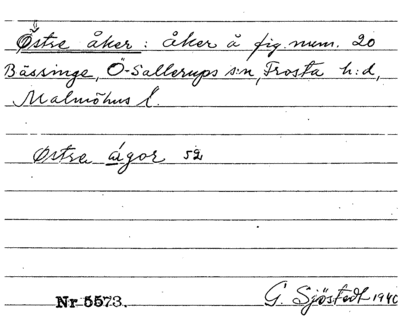 Östre åker : åker å fig. num. 20
Bässinge, Ö-Sallerups s:n, Frosta h:d,
Malmöhus l.
Östra ägor 52
Nr 5573.
G. Sjöstedt 1940